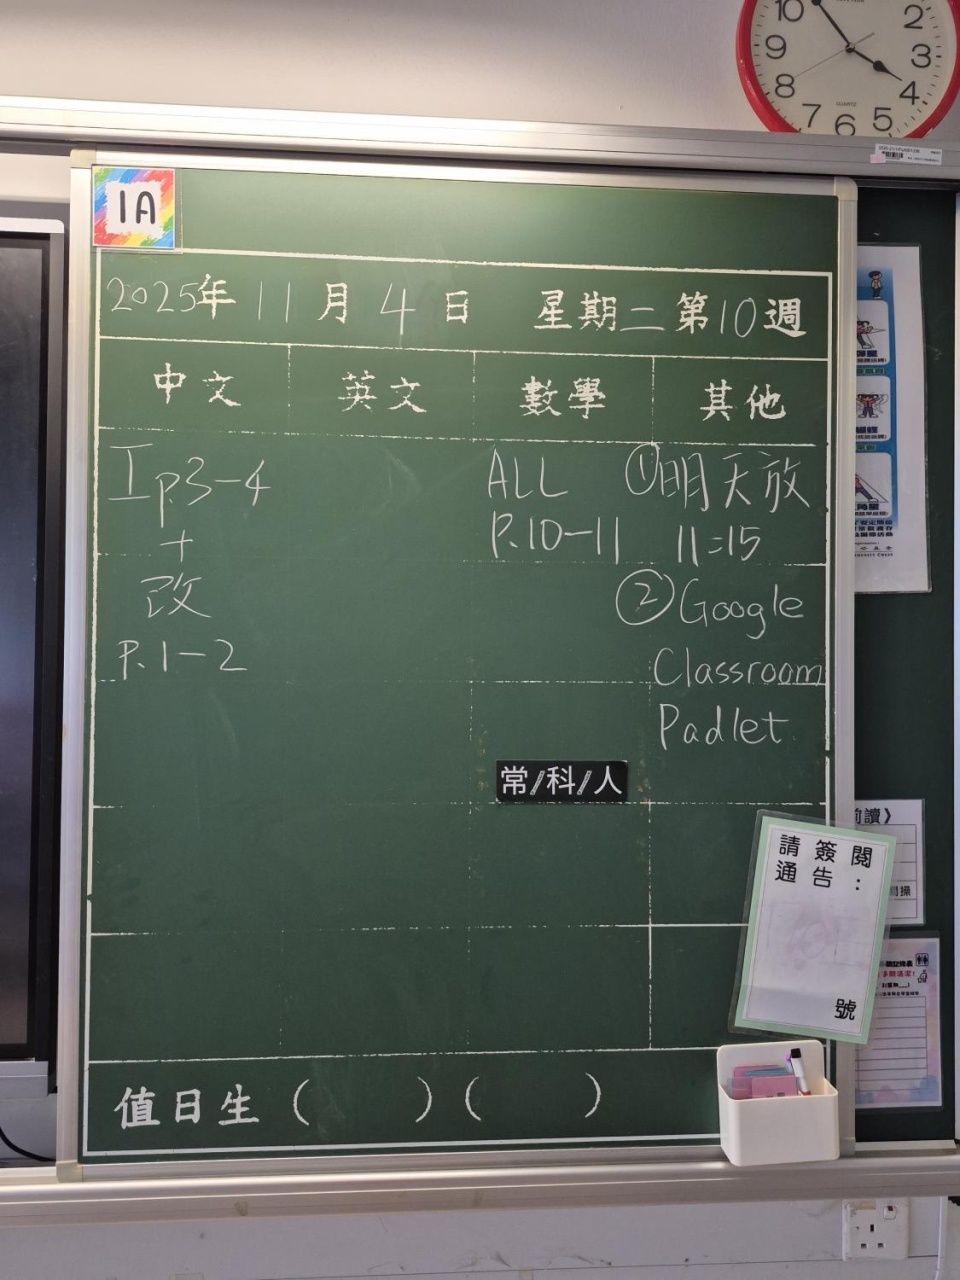 10 2
9 3
8 4
7 6 5
QUARTZ
1A
2025年 11月 4日 星期二 第10週
中文 英文 數學 其他
工 p.3-4
+
改
P.1-2
ALL
P.10-11
①明天放
11:15
②Google
Classroom
Padlet
常/科/人
請簽閱
通告:
號
值日生 ( ) ( )